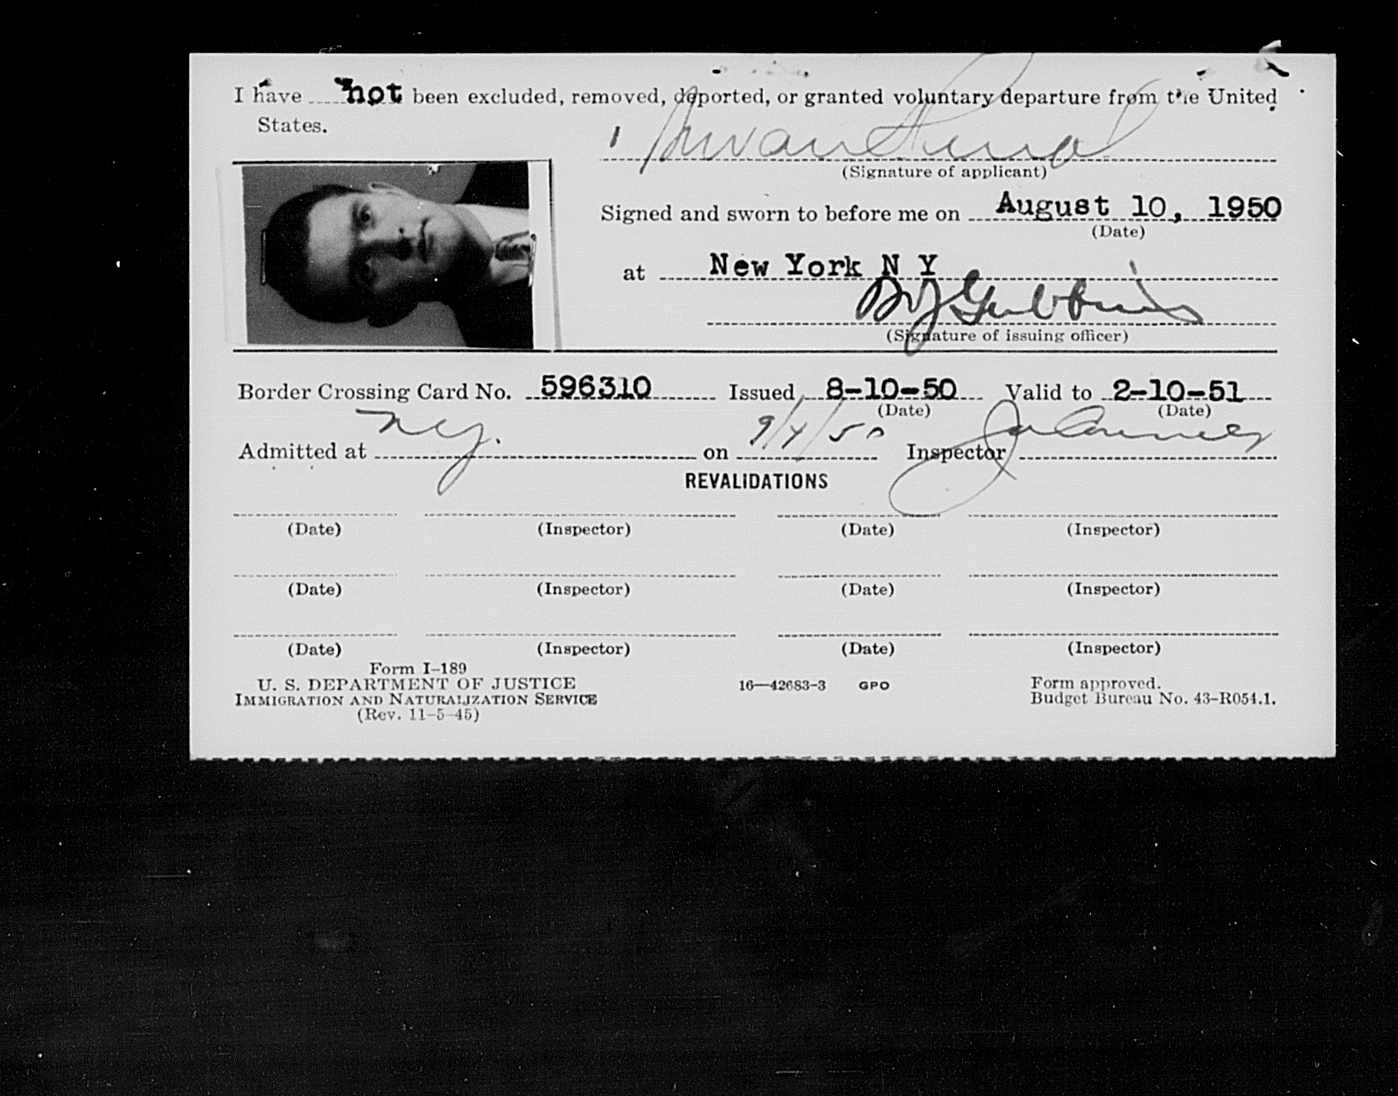 I have not been excluded, removed, deported, or granted voluntary departure from the United
States.
(Signature of applicant)
Signed and sworn to before me on August 10, 1950
(Date)
at New York N Y
(Signature of issuing officer)
Border Crossing Card No. 596310 Issued 8-10-50 Valid to 2-10-51
(Date) (Date)
Admitted at NY. on 9/4/50 Inspector
REVALIDATIONS
(Date) (Inspector) (Date) (Inspector)
(Date) (Inspector) (Date) (Inspector)
(Date) (Inspector) (Date) (Inspector)
Form I-189
U. S. DEPARTMENT OF JUSTICE 16—42683-3 GPO Form approved.
IMMIGRATION AND NATURALIZATION SERVICE Budget Bureau No. 43-R054.1.
(Rev. 11-5-45)